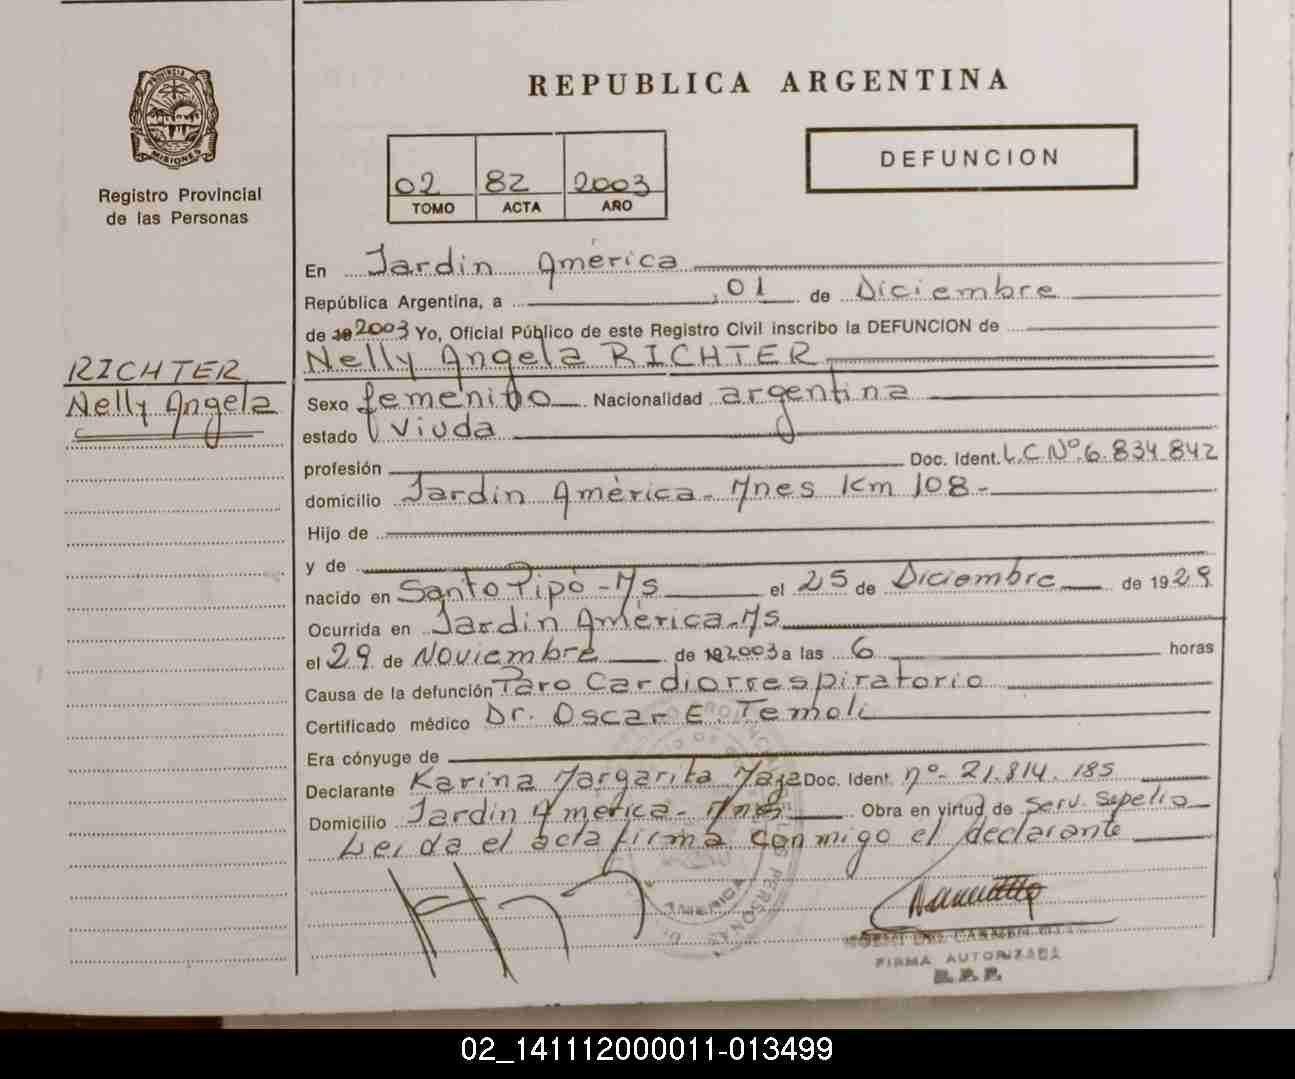 PROVINCIA DE
MISIONES
Registro Provincial
de las Personas
RICHTER
Nelly Angela
REPUBLICA ARGENTINA
DEFUNCION
02 82 2003
TOMO ACTA AÑO
En Jardin América
República Argentina, a 01 de Diciembre
de 19 2003 Yo, Oficial Público de este Registro Civil inscribo la DEFUNCION de
Nelly Angela RICHTER
Sexo femenino Nacionalidad argentina
estado viuda
profesión Doc. Ident. L.C Nº 6.834.842
domicilio Jardin América - Mnes Km 108 -
Hijo de
y de
nacido en Santo Pipó - Ms el 25 de Diciembre de 1929
Ocurrida en Jardin América - Ms
el 29 de Noviembre de 19 2003 a las 6 horas
Causa de la defunción Paro Cardiorrespiratorio
Certificado médico Dr. Oscar E. Temoli
Era cónyuge de
Declarante Karina Margarita Maza Doc. Ident. nº - 21.814.185
Domicilio Jardin América - Mnes Obra en virtud de Serv. Sepelio
Leida el acta firma conmigo el declarante
AMERICA
PERSONAS
NOEMI DEL CARMEN
FIRMA AUTORIZADA
R.P.P.
02_141112000011-013499